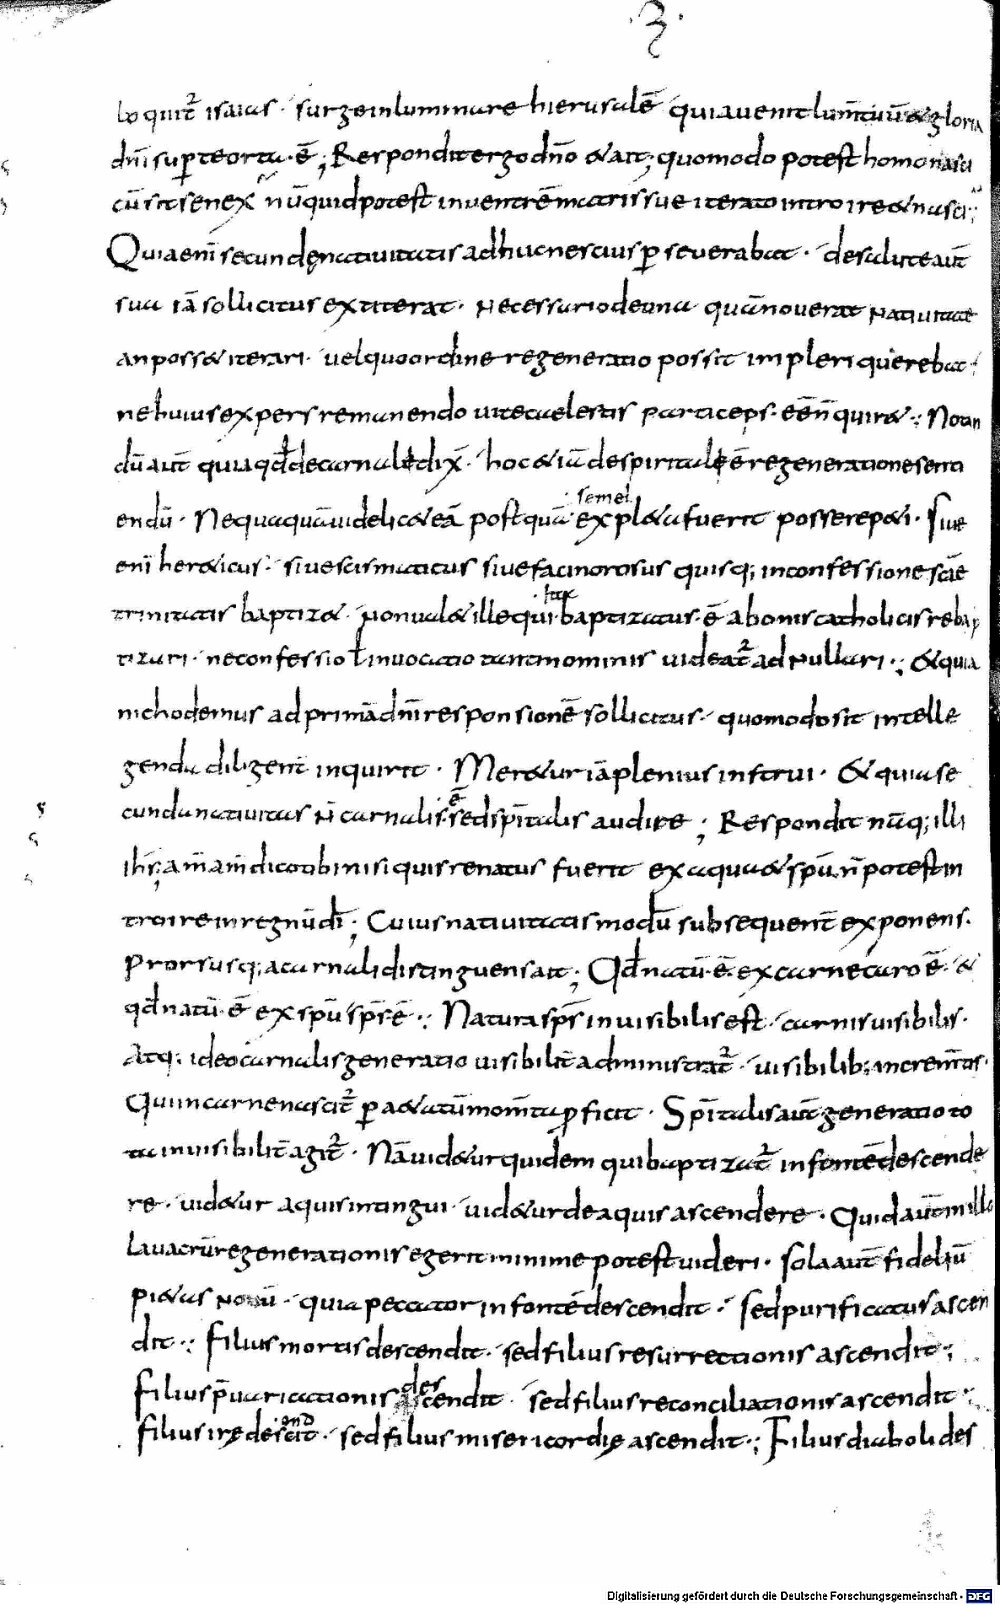 ·3·
loquit̄ isaias · surge inluminare hierusalē quia uenit lum̄ tuū & gloria
dn̄i sup̄ te orta · ē ; Respondit ergo dn̄o & ait ; quomodo potest homo nasci
cū sit senex nūquid potest in uentrē matris sue iterato introire & nasci ;
Quia enī secundę natiuitatis adhuc nescius p̄ seuerabat · de salute aut̄
sua iā sollicitus extiterat · Necessario de una quā nouerat natiuitate
an poss& iterari · uel quo ordine regeneratio possit impleri querebat
ne huius expers remanendo uite caelestis particeps · eē n̄ quir& ; Notan
dū aut̄ quia qđ de carnale dix̄ · hoc & iā de spiritale ē regeneratione senti
endū · Nequaquā uidelic& eā postquā semel expl&a fuerit posse rep&i · Siue
enī her&icus · siue scismaticus siue facinorosus quisq; in confessione scāe
trinitatis baptiz& · non ual& ille qui · ita · baptizatus · ē a bonis catholicis rebap
tizari · ne confessio ł inuocatio tanti nominis uideat̄ adnullari ; & quia
nichodemus ad primā dn̄i responsionē sollicitus · quomodo sit intelle
genda diligent̄ inquirit · Mer&ur iā plenius instrui · & quia se
cunda natiuitas n̄ carnalis · ē sed spīt̄alis audire ; Respondit nūq; illi
ihs̄ ; am̄ am̄ dico tibi nisi quis renatus fuerit ex aqua & spū n̄ potest in
troire in regnū dī ; Cuius natiuitatis modū subsequent̄ exponens ·
Prorsusq; a carnali distinguens ait ; Qđ natū · ē · ex carne caro ē · &
qđ natū · ē ex spū sp̄s ē ; Natura sp̄s inuisibilis est · carnis uisibilis ·
Atq; ideo carnalis generatio uisibilit̄ administrat̄ · uisibilib; increm̄tis ·
Qui in carne nascit̄ p̄ a&atū mom̄ta p̄ficit · Spīt̄alis aut̄ generatio to
ta inuisibilit̄ agit̄ · Nā uid&ur quidem qui baptizat̄ in fontē descende
re · uid&ur aquis intingui · uid&ur de aquis ascendere · Quid aut̄ in illo
lauacrū regenerationis egerit minime potest uideri · sola aut̄ fideliū
pi&as nouū · quia peccator in fontē descendit · sed purificatus ascen
dit ; Filius mortis descendit · sed filius resurrectionis ascendit ;
filius p̄uaricationis descendit · sed filius reconciliationis ascendit ;
filius irę descendit · sed filius misericordię ascendit ; Filius diaboli des
Digitalisierung gefördert durch die Deutsche Forschungsgemeinschaft - DFG